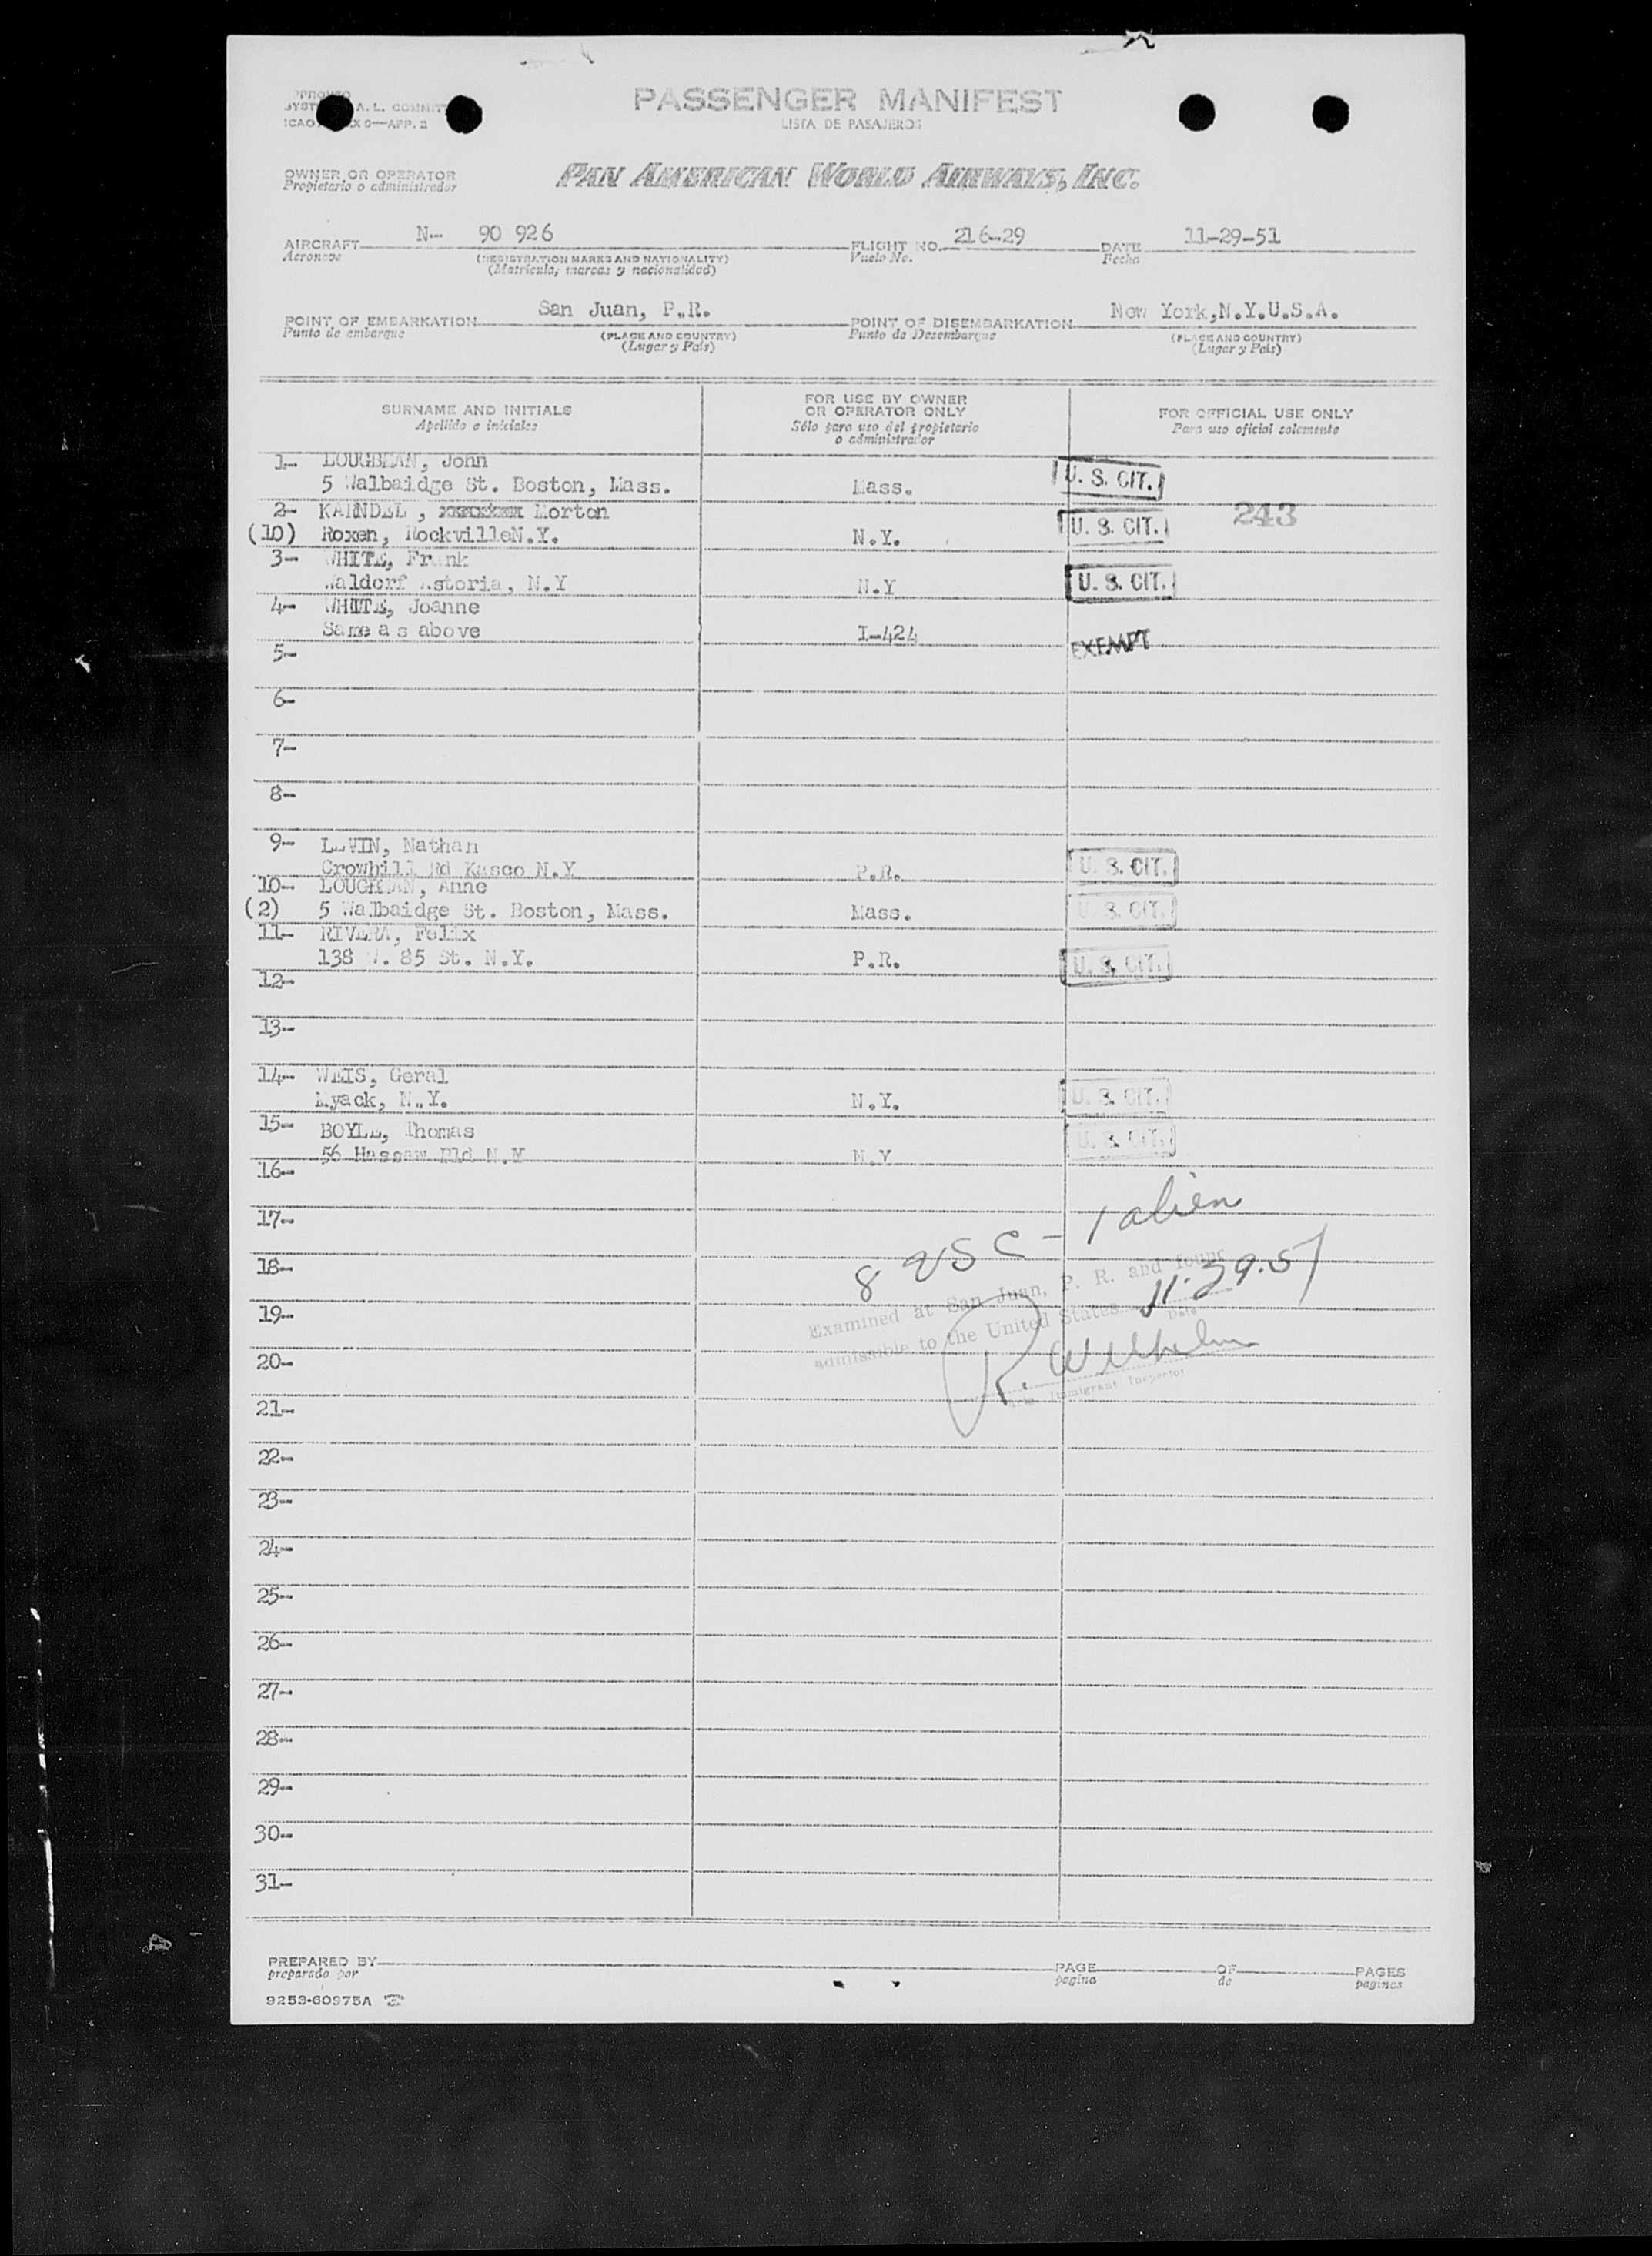 PASSENGER MANIFEST
LISTA DE PASAJEROS
OWNER OR OPERATOR
Propietario o administrador
PAN AMERICAN WORLD AIRWAYS, INC.
AIRCRAFT N- 90 926 FLIGHT NO. 216-29 DATE 11-29-51
Aeronave (REGISTRATION MARKS AND NATIONALITY) Vuelo No. Fecha
(Matricula, marcas y nacionalidad)
POINT OF EMBARKATION San Juan, P.R. POINT OF DISEMBARKATION New York,N.Y.U.S.A.
Punto de embarque (PLACE AND COUNTRY) Punto de Desembarque (PLACE AND COUNTRY)
(Lugar y País) (Lugar y País)
SURNAME AND INITIALS FOR USE BY OWNER OR OPERATOR ONLY FOR OFFICIAL USE ONLY
Apellido e iniciales Sólo para uso del propietario o administrador Para uso oficial solamente
1- John
5 Walbaidge St. Boston, Mass. Mass. U. S. CIT.
2- KAINDEL , Morton 243
(10) Roxen, RockvilleN.Y. N.Y. U. S. CIT.
3- WHITE, Frank
Waldorf Astoria, N.Y N.Y U. S. CIT.
4- WHITE, Joanne
Same a s above I-424 EXEMPT
5-
6-
7-
8-
9- LEVIN, Nathan
Crowhill Rd N.Y P.R. U. S. CIT.
10- Anne
(2) 5 Walbaidge St. Boston, Mass. Mass. U. S. CIT.
11- RIVERA, Felix
138 W. 85 St. N.Y. P.R. U. S. CIT.
12-
13-
14- WEIS, Geral
Nyack, N.Y. N.Y. U. S. CIT.
15- BOYLE, Thomas U. S. CIT.
56 N.Y N.Y
16-
17- 1 alien
8 USC -
18-
Examined at San Juan, P. R. and found 11.29.51
19-
admissible to the United States Date
20- R. Wilhelm
Immigrant Inspector
21-
22-
23-
24-
25-
26-
27-
28-
29-
30-
31-
PREPARED BY PAGE OF PAGES
preparado por pagina de paginas
9253-60975A